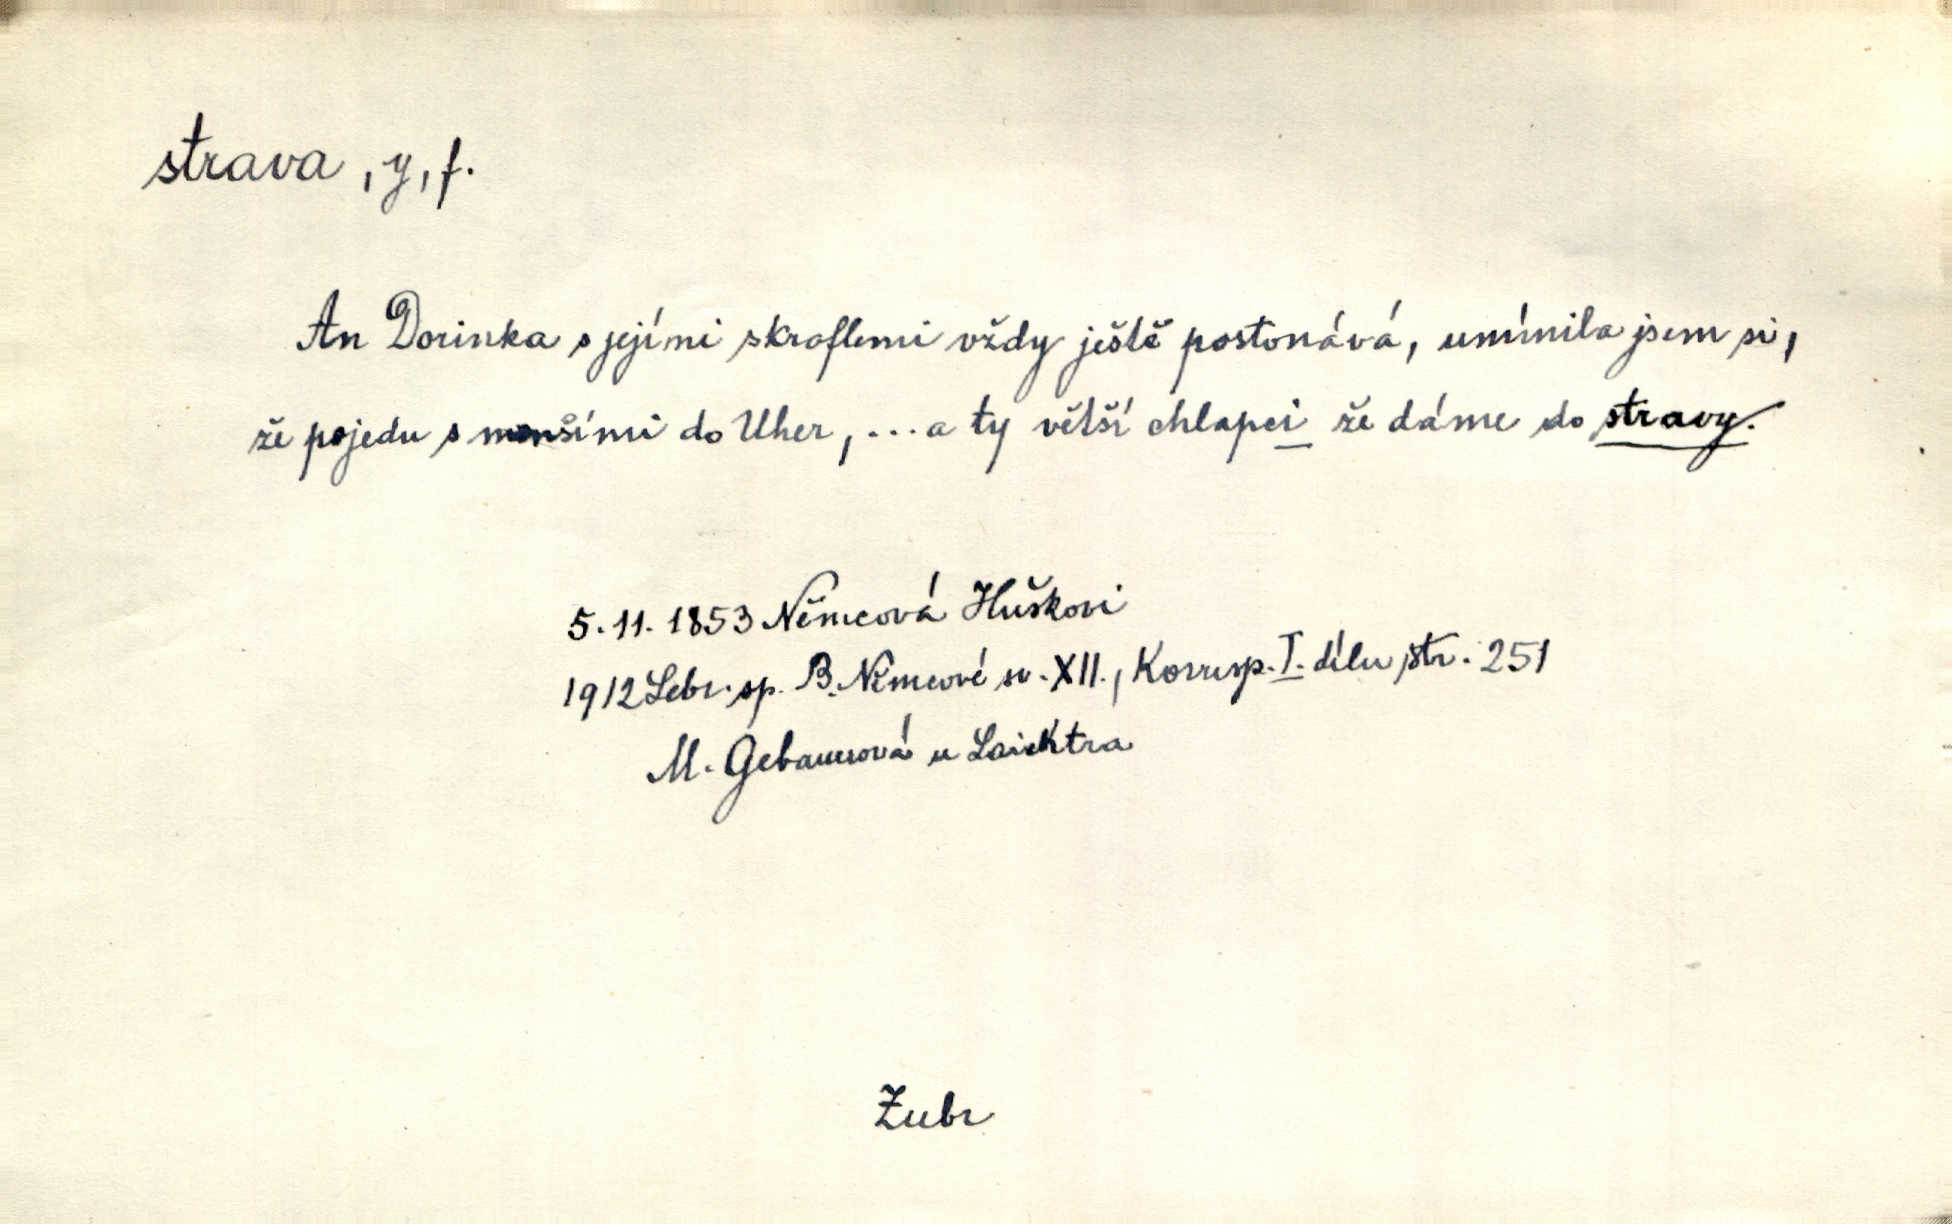 strava, y, f.
An Dorinka s jejími skroflemi vždy ještě postonává, umínila jsem si,
že pojedu s menšími do Uher, ... a ty větší chlapci že dáme do stravy.
5. 11. 1853 Němcová Huškovi
1912 Sebr. sp. B. Němcové sv. XII., Korresp. I. dílu str. 251
M. Gebauerová u Laichtra
Zubr